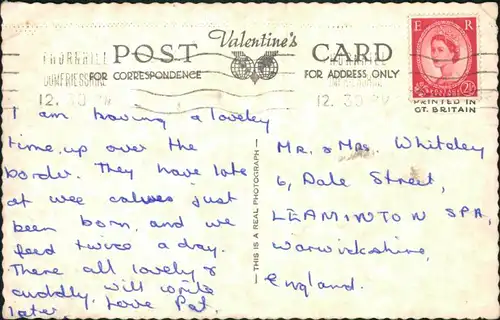 THORNHILL
DUMFRIESSHIRE
12.30 PM
POST
Valentine's
CARD
FOR CORRESPONDENCE
FOR ADDRESS ONLY
12.30 PM
E R
2½
PRINTED IN
GT. BRITAIN
I am having a loveley
time, up over the
border. They have lote
of wee calves just
been born, and we
feed twice a day.
There all lovely &
cuddly, will write
later, Love Pat.
THIS IS A REAL PHOTOGRAPH
Mr. & Mrs. Whiteley
6, Dale Street,
LEAMINTON SPA,
Warwickshire,
England.